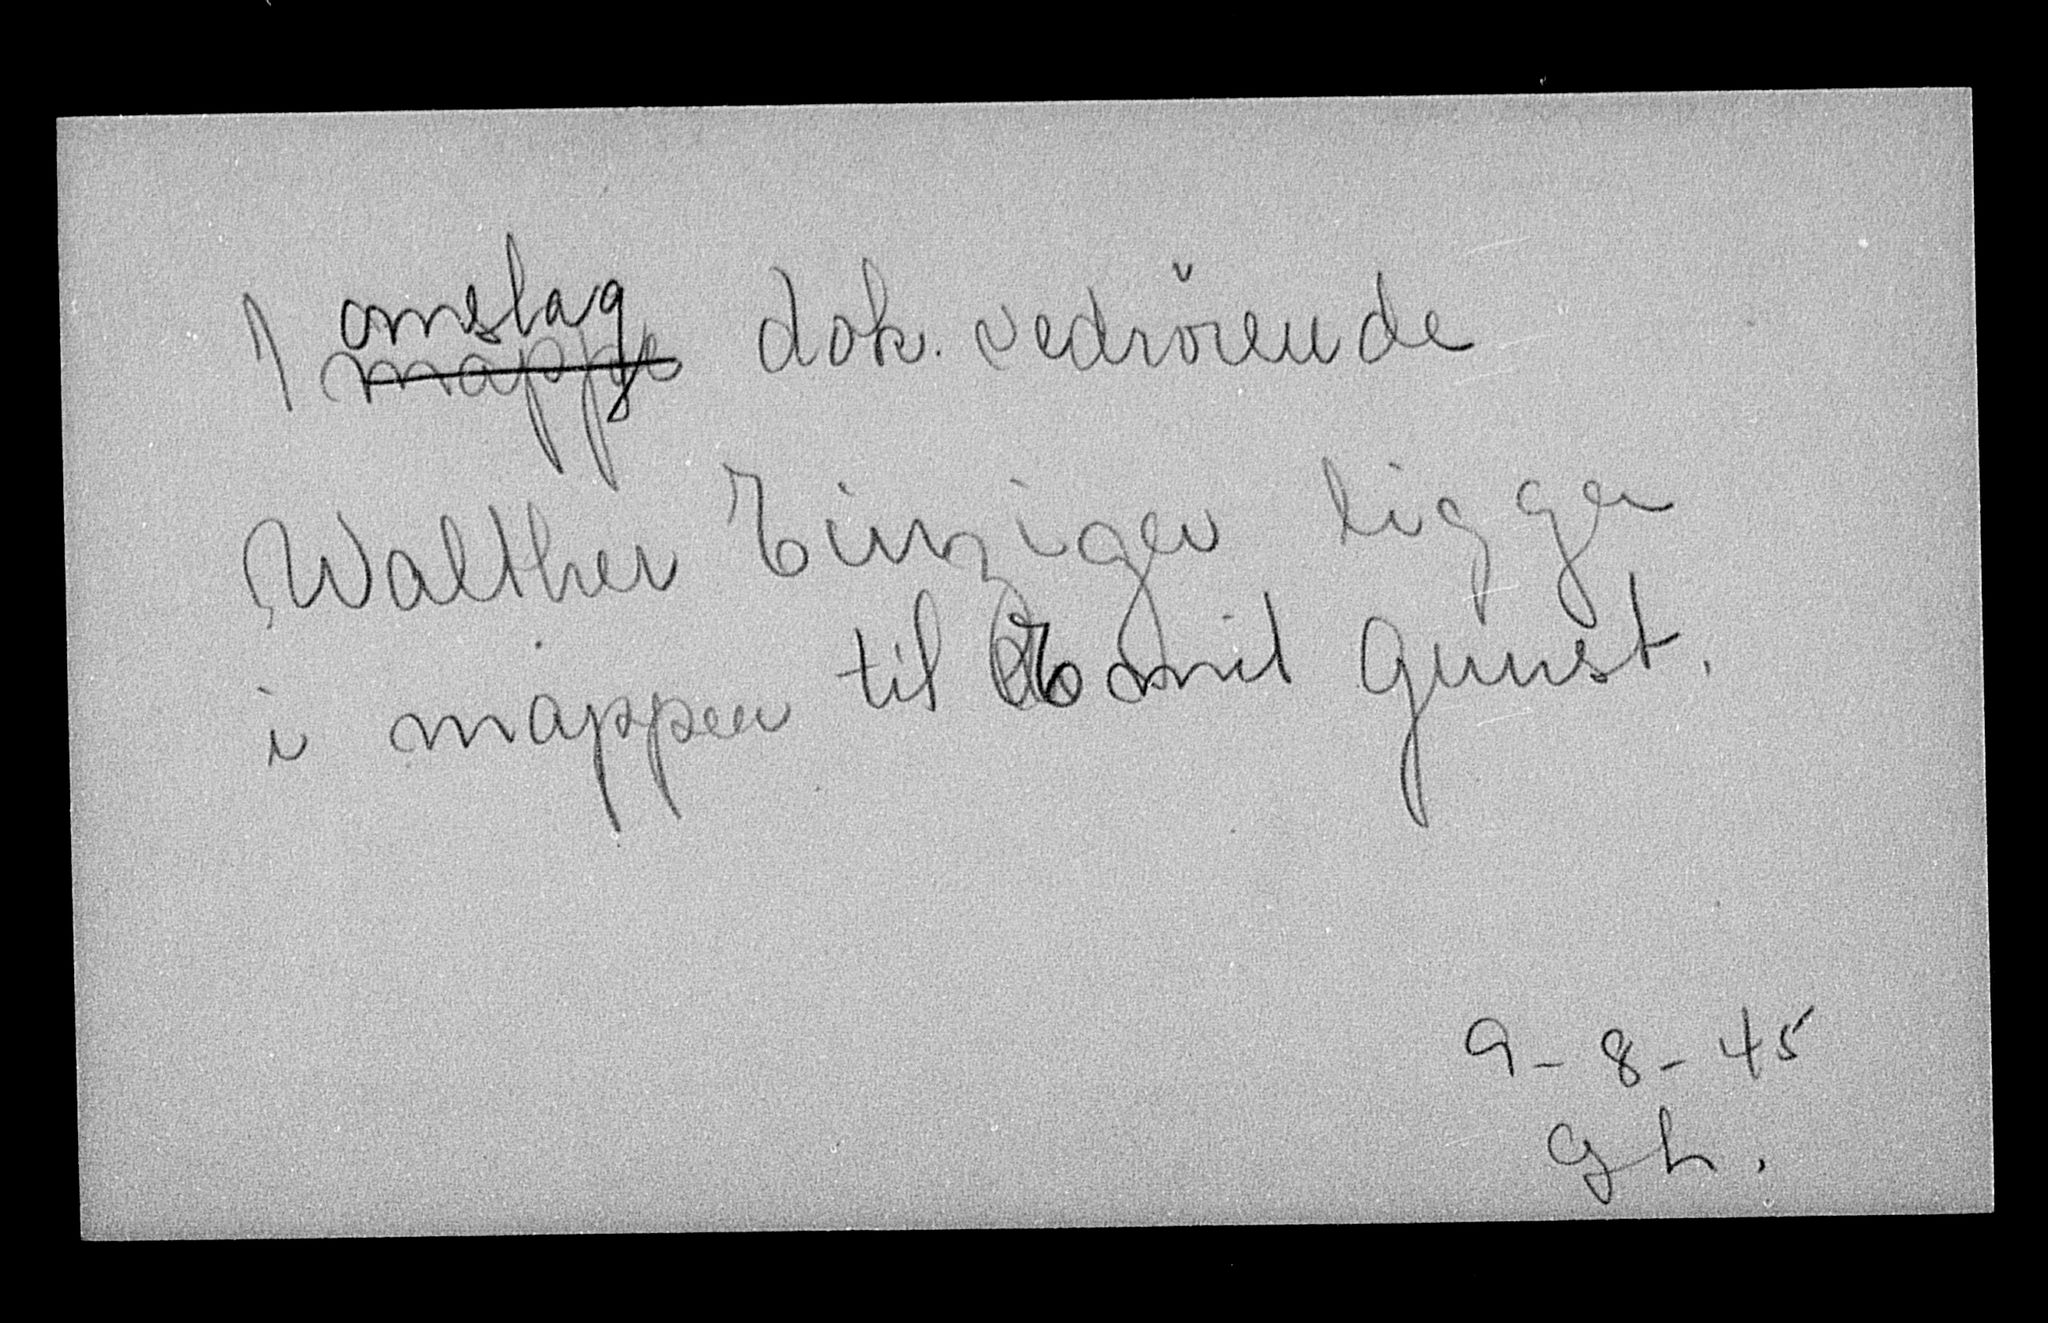 1 omslag dok. vedrörende
Walther Einziger ligger
i mappen til Emil Gunst.
9-8-45
GL.